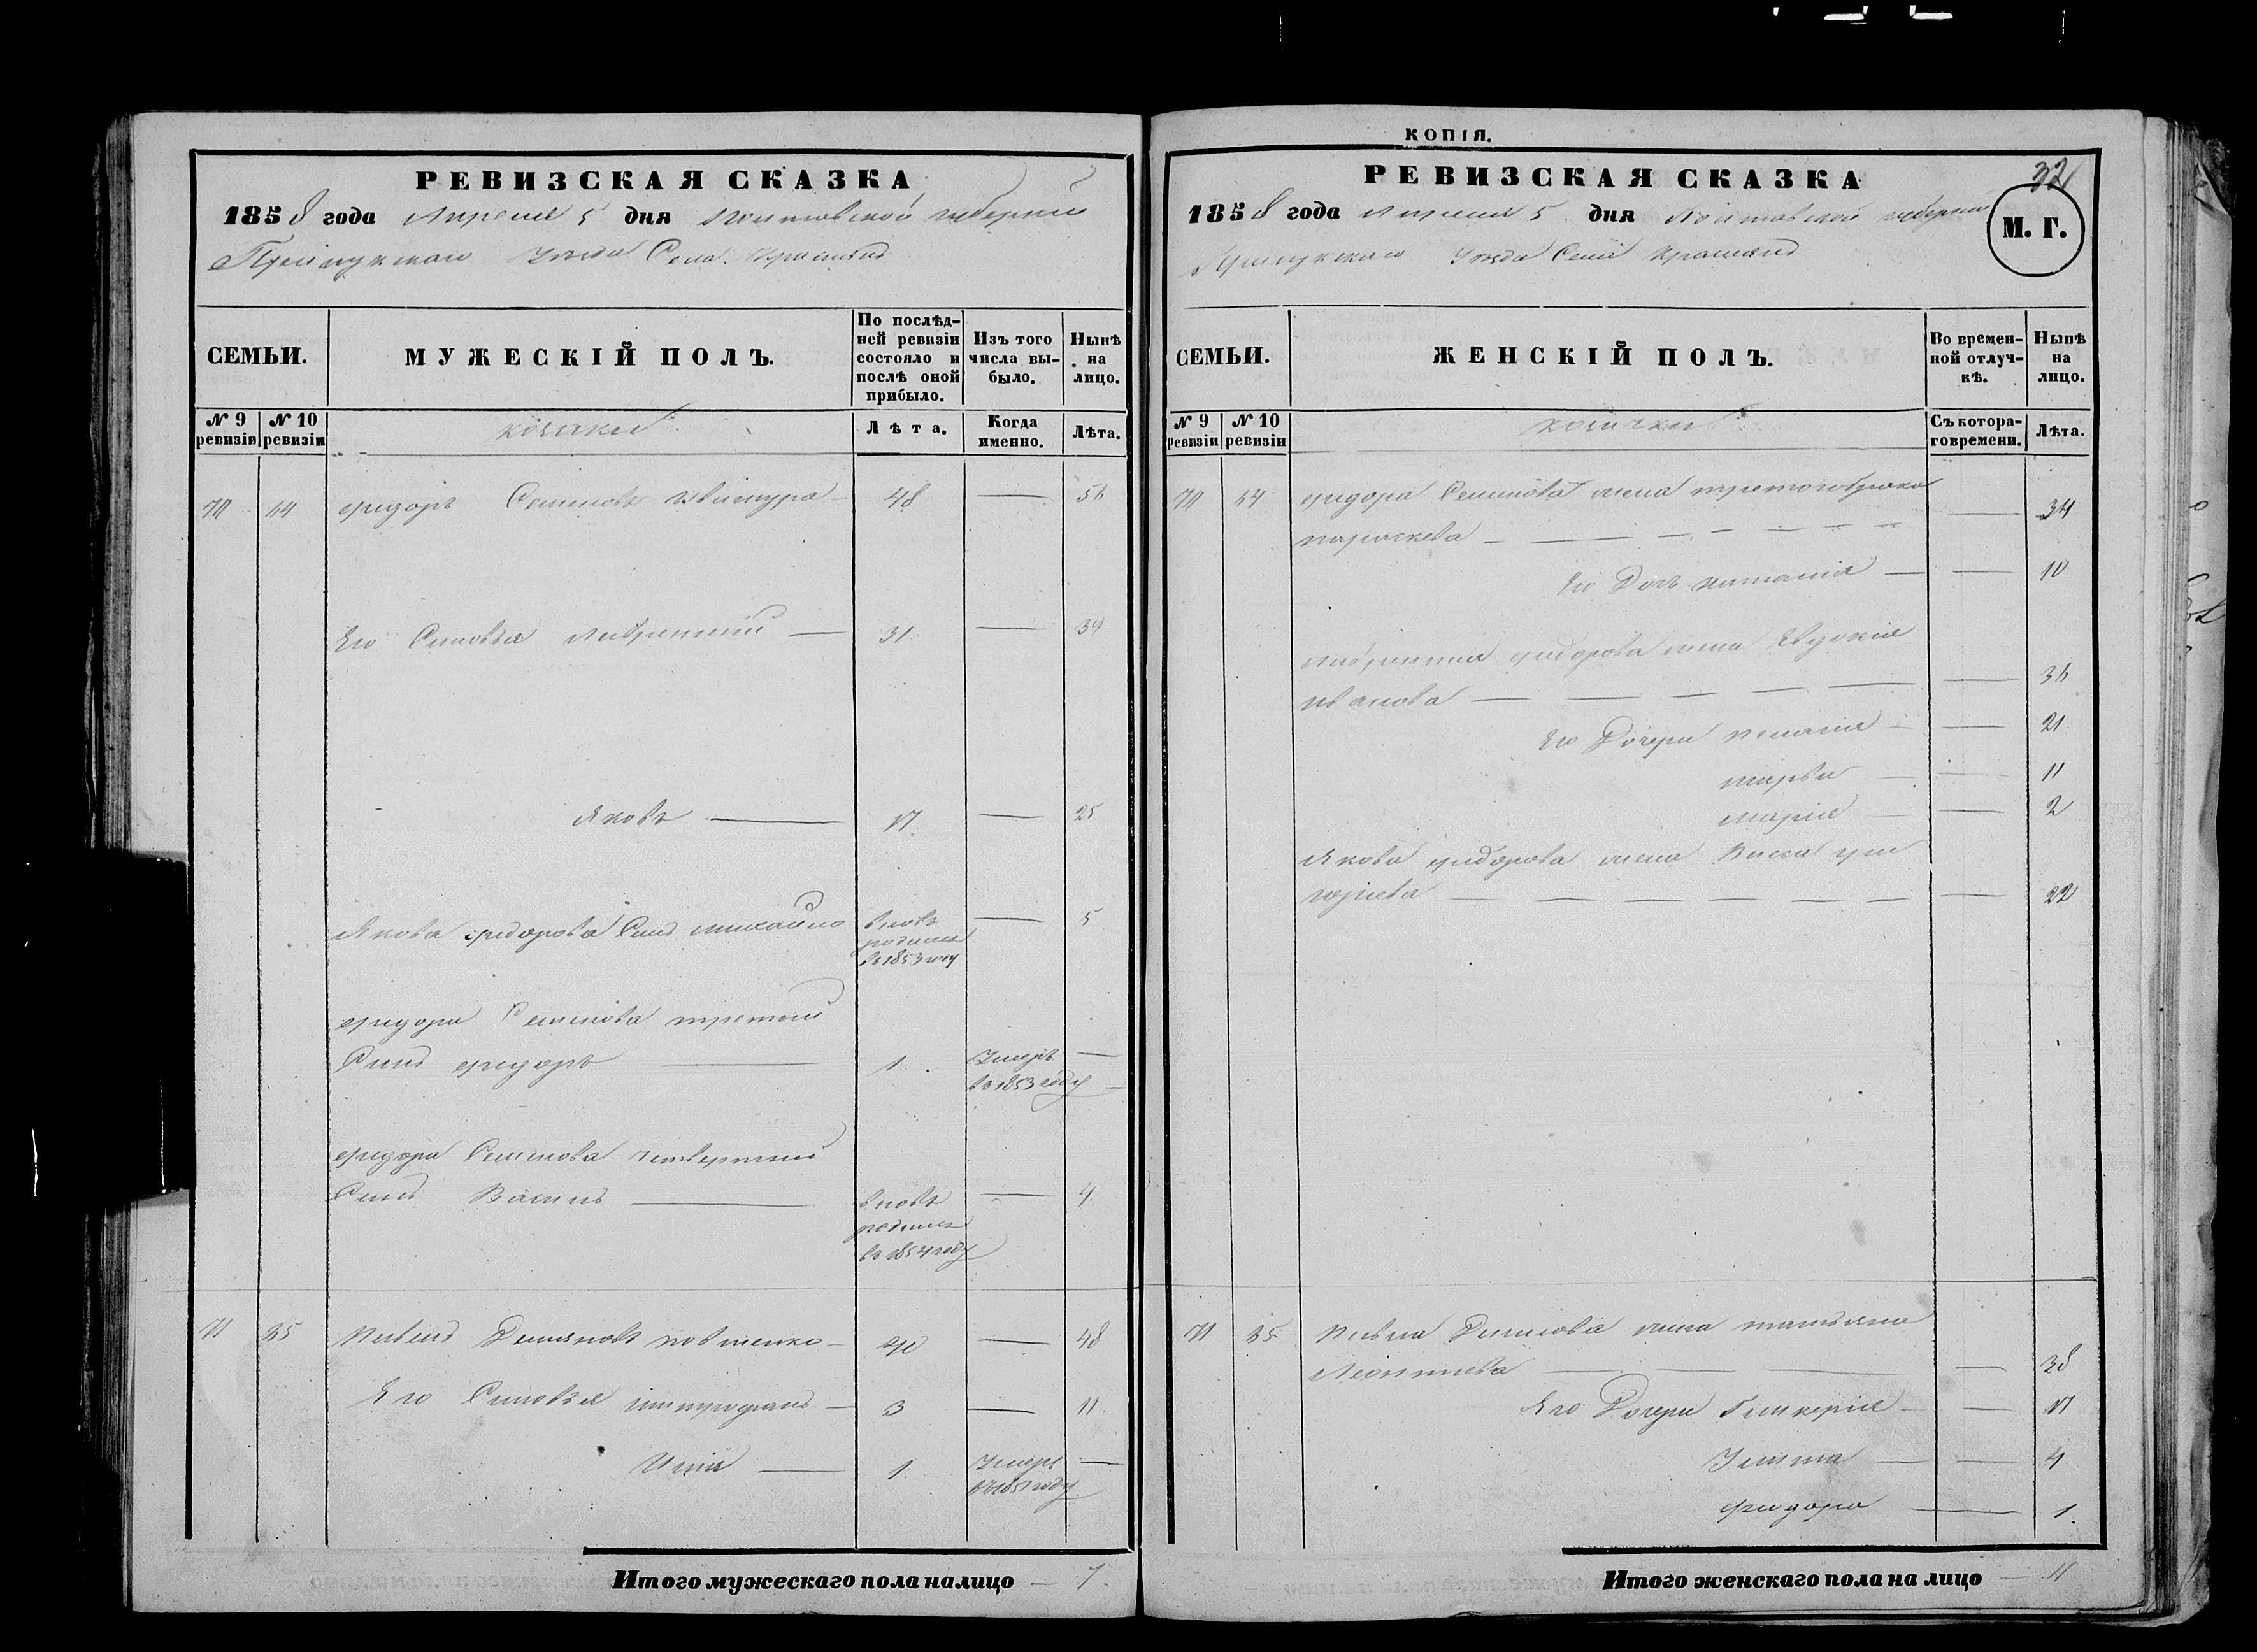 РЕВИЗСКАЯ СКАЗКА
1858 года Апреля 5 дня Полтавской губернии
Прилукского Уезда Села
СЕМЬИ.
МУЖЕСКІЙ ПОЛЪ.
По послѣд-
ней ревизіи
состояло и
послѣ оной
прибыло.
Изъ того
числа вы-
было.
Нынѣ
на
лицо.
№ 9
ревизіи
№ 10
ревизіи
козаки
Лѣта.
Когда
именно.
Лѣта.
Федоръ Семеновъ 48 — 56
Его Синовья Лаврентий — 31 — 39
Яковъ — 17 — 25
Якова Федорова Синъ Михайло вновь — 5
родился
въ 1853 году
Федора Семенова третий
Синъ Федоръ — 1 Умеръ —
въ 1853 году —
Федора Семенова четвертий
Синъ Василь — вновь — 4
родился
въ 1854 году
71 Демяновъ 40 — 48
Его Синовья Митрофанъ — 3 — 11
Илія — 1 Умеръ —
году
Итого мужескаго пола налицо — 7.
КОПІЯ.
РЕВИЗСКАЯ СКАЗКА
32
1858 года Апреля 5 дня Полтавской губернии
М. Г.
Прилукского Уезда Села
СЕМЬИ.
ЖЕНСКІЙ ПОЛЪ.
Во времен-
ной отлуч-
кѣ.
Нынѣ
на
лицо.
№ 9
ревизіи
№ 10
ревизіи
козачки
Съ котора-
го времени.
Лѣта.
Федора Семенова жена третогобрака
Параскева — — 34
Его Дочь Наталия — — 10
Лаврентия Федорова жена Евдокия
Иванова — — 36
Его Дочери — — 21
Марфа — — 11
Мария — — 2
Якова Федорова жена Васса Гри
горієва — — 22
71 жена Татьяна
Леонтиева — — 38
Его Дочери Гликерия — — 17
Улита — — 4
Федора — 1.
Итого женскаго пола на лицо — 11